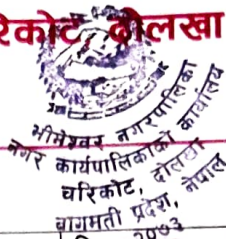 रिकोट, दोलखा
भीमेश्वर नगरपालिका
नगर कार्यपालिकाको कार्यालय
चरिकोट, दोलखा
बागमती प्रदेश, नेपाल
२०७३